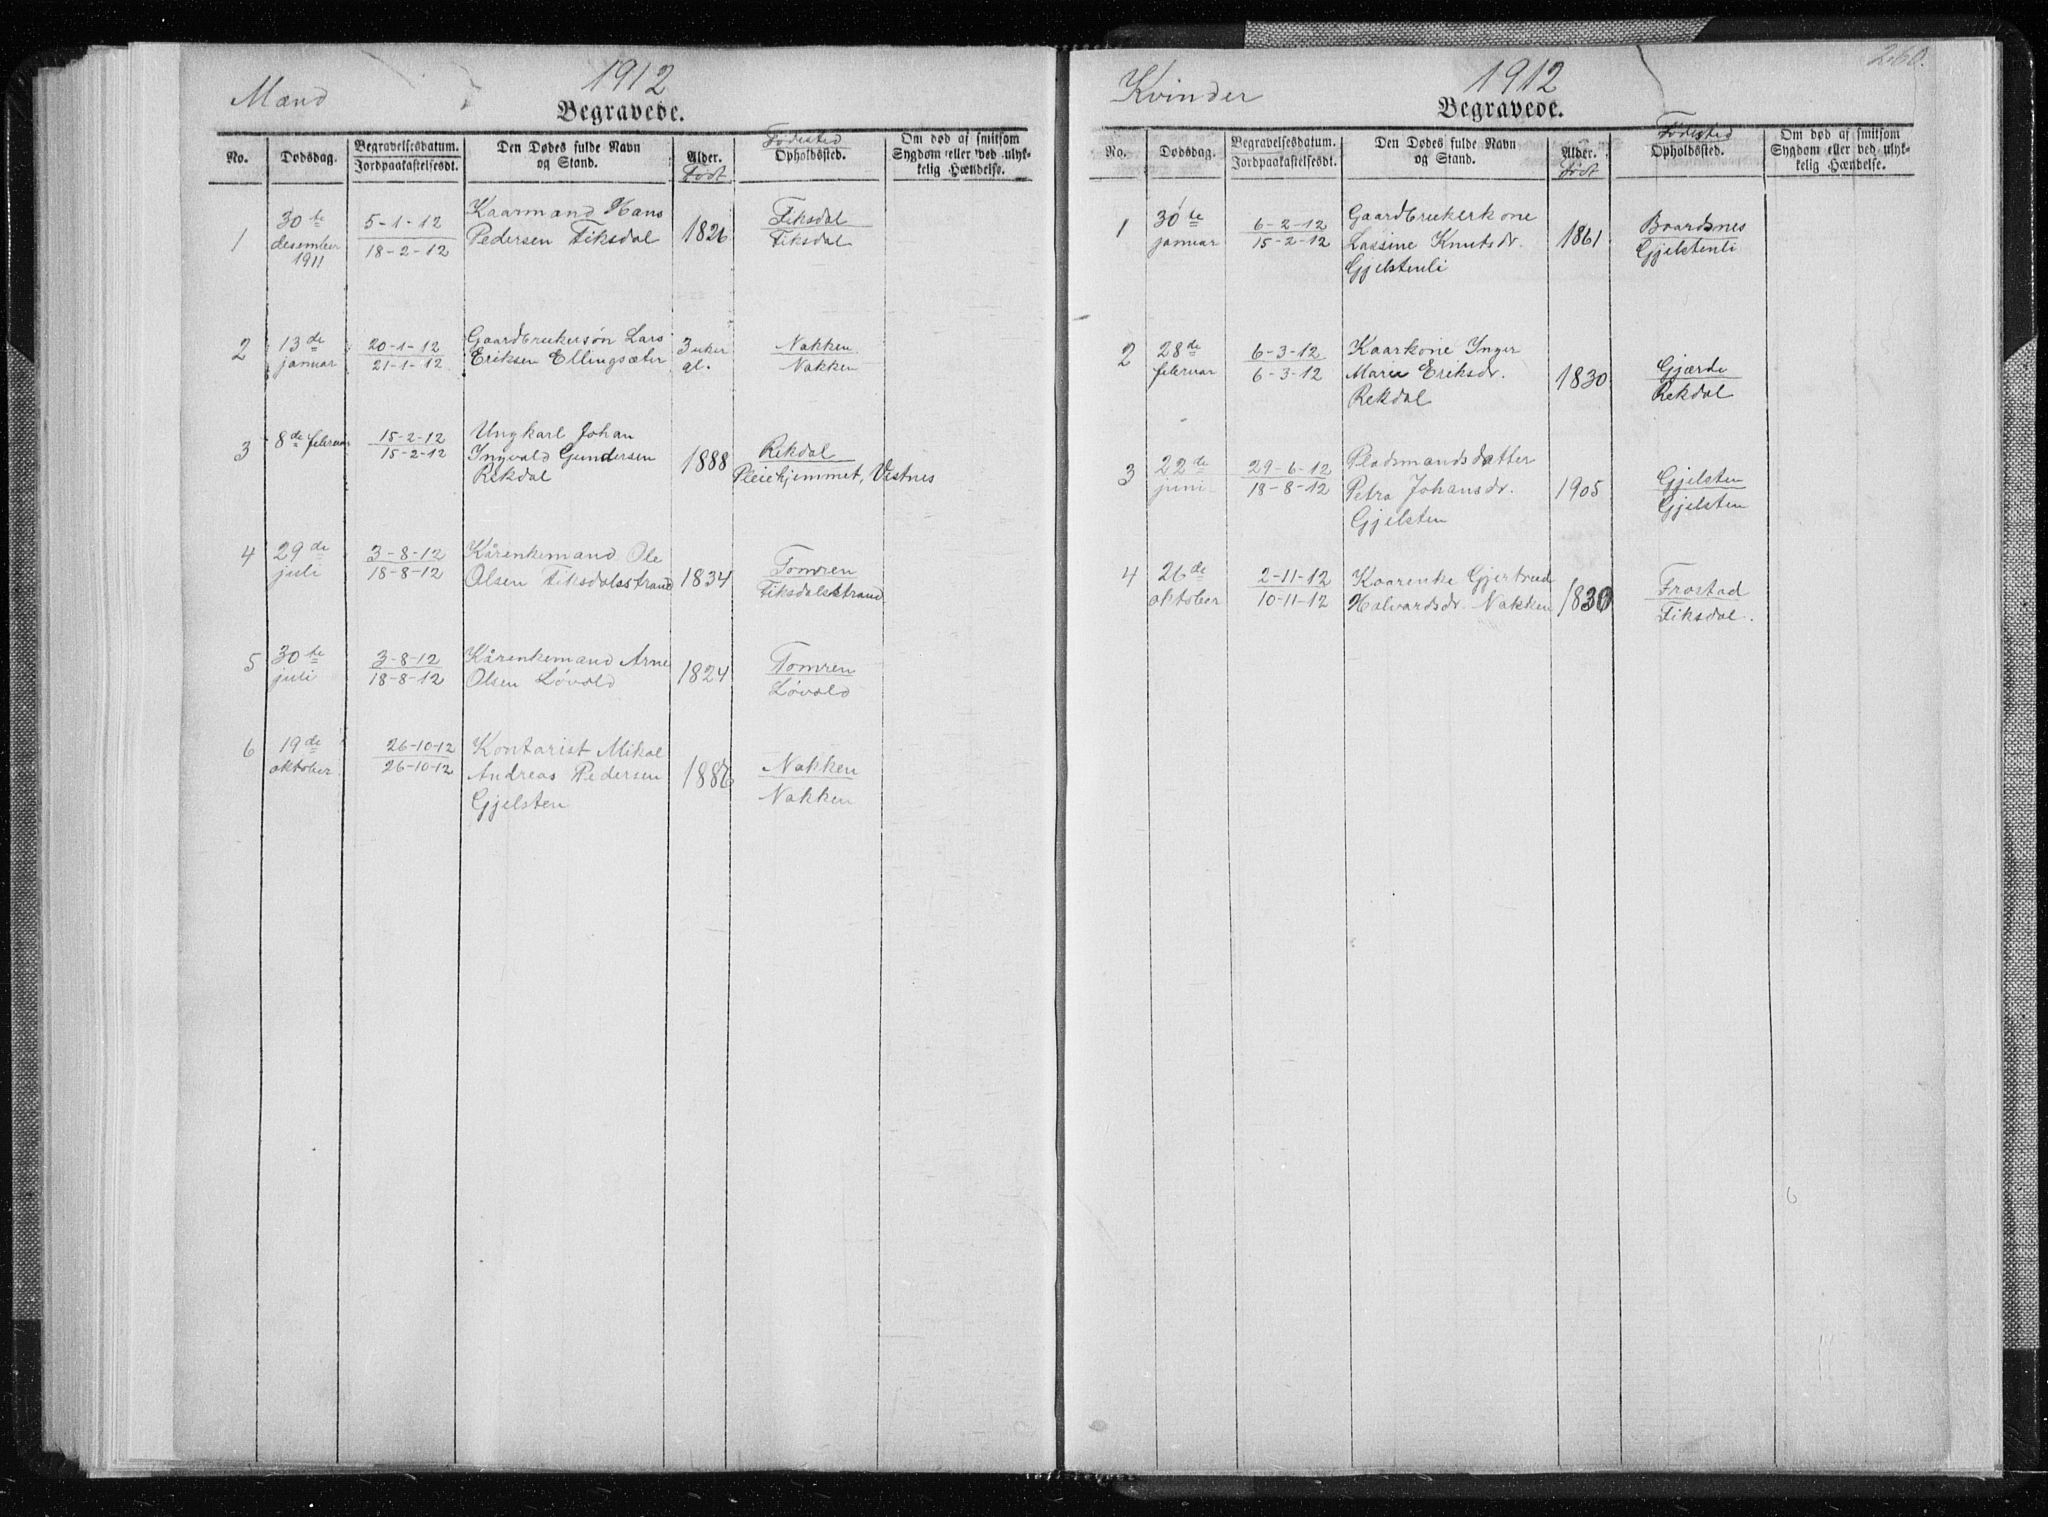 Mænd
1912
Begravede.
No. Dødsdag. Begravelsesdatum. Jordpaakastelsesdt. Den Dødes fulde Navn og Stand. Alder. Født Fødested Opholdssted. Om død af smitsom Sygdom eller ved ulykkelig Hændelse.
1 30te desember 1911 5-1-12 18-2-12 Kaarmand Hans
Pedersen Fiksdal 1826 Fiksdal Fiksdal
2 13de januar 20-1-12 21-1-12 Gaardbrukersøn Lars
Eriksen Ellingsæter 3 uker gl. Nakken Nakken
3 8de februar 15-2-12 15-2-12 Ungkarl Johan
Ingvald Gundersen
Rekdal 1888 Rekdal Pleiehjemmet, Vestnes
4 29de juli 3-8-12 18-8-12 Kårenkemand Ole
Olsen Fiksdalsstrand 1834 Tomren Fiksdalsstrand
5 30te juli 3-8-12 18-8-12 Kårenkemand Arne
Olsen Løvold 1824 Tomren Løvold
6 19de oktober 26-10-12 26-10-12 Kontorist Mikal
Andreas Pedersen
Gjelsten 1886 Nakken Nakken
260.
Kvinder
1912
Begravede.
No. Dødsdag. Begravelsesdatum. Jordpaakastelsesdt. Den Dødes fulde Navn og Stand. Alder. Født Fødested Opholdssted. Om død af smitsom Sygdom eller ved ulykkelig Hændelse.
1 30te januar 6-2-12 15-2-12 Gaardbrukerkone
Lassine Knutsdr.
Gjelstenli 1861 Baardsnes Gjelstenli
2 28de februar 6-3-12 6-3-12 Kaarkone Inger
Marie Eriksdr.
Rekdal 1830 Gjærde Rekdal
3 22de juni 29-6-12 18-8-12 Pladsmandsdatter
Petra Johansdr.
Gjelsten 1905 Gjelsten Gjelsten
4 26de oktober 2-11-12 10-11-12 Kaarenke Gjertrud
Halvardsdr. Nakken 1830 Frostad Fiksdal.